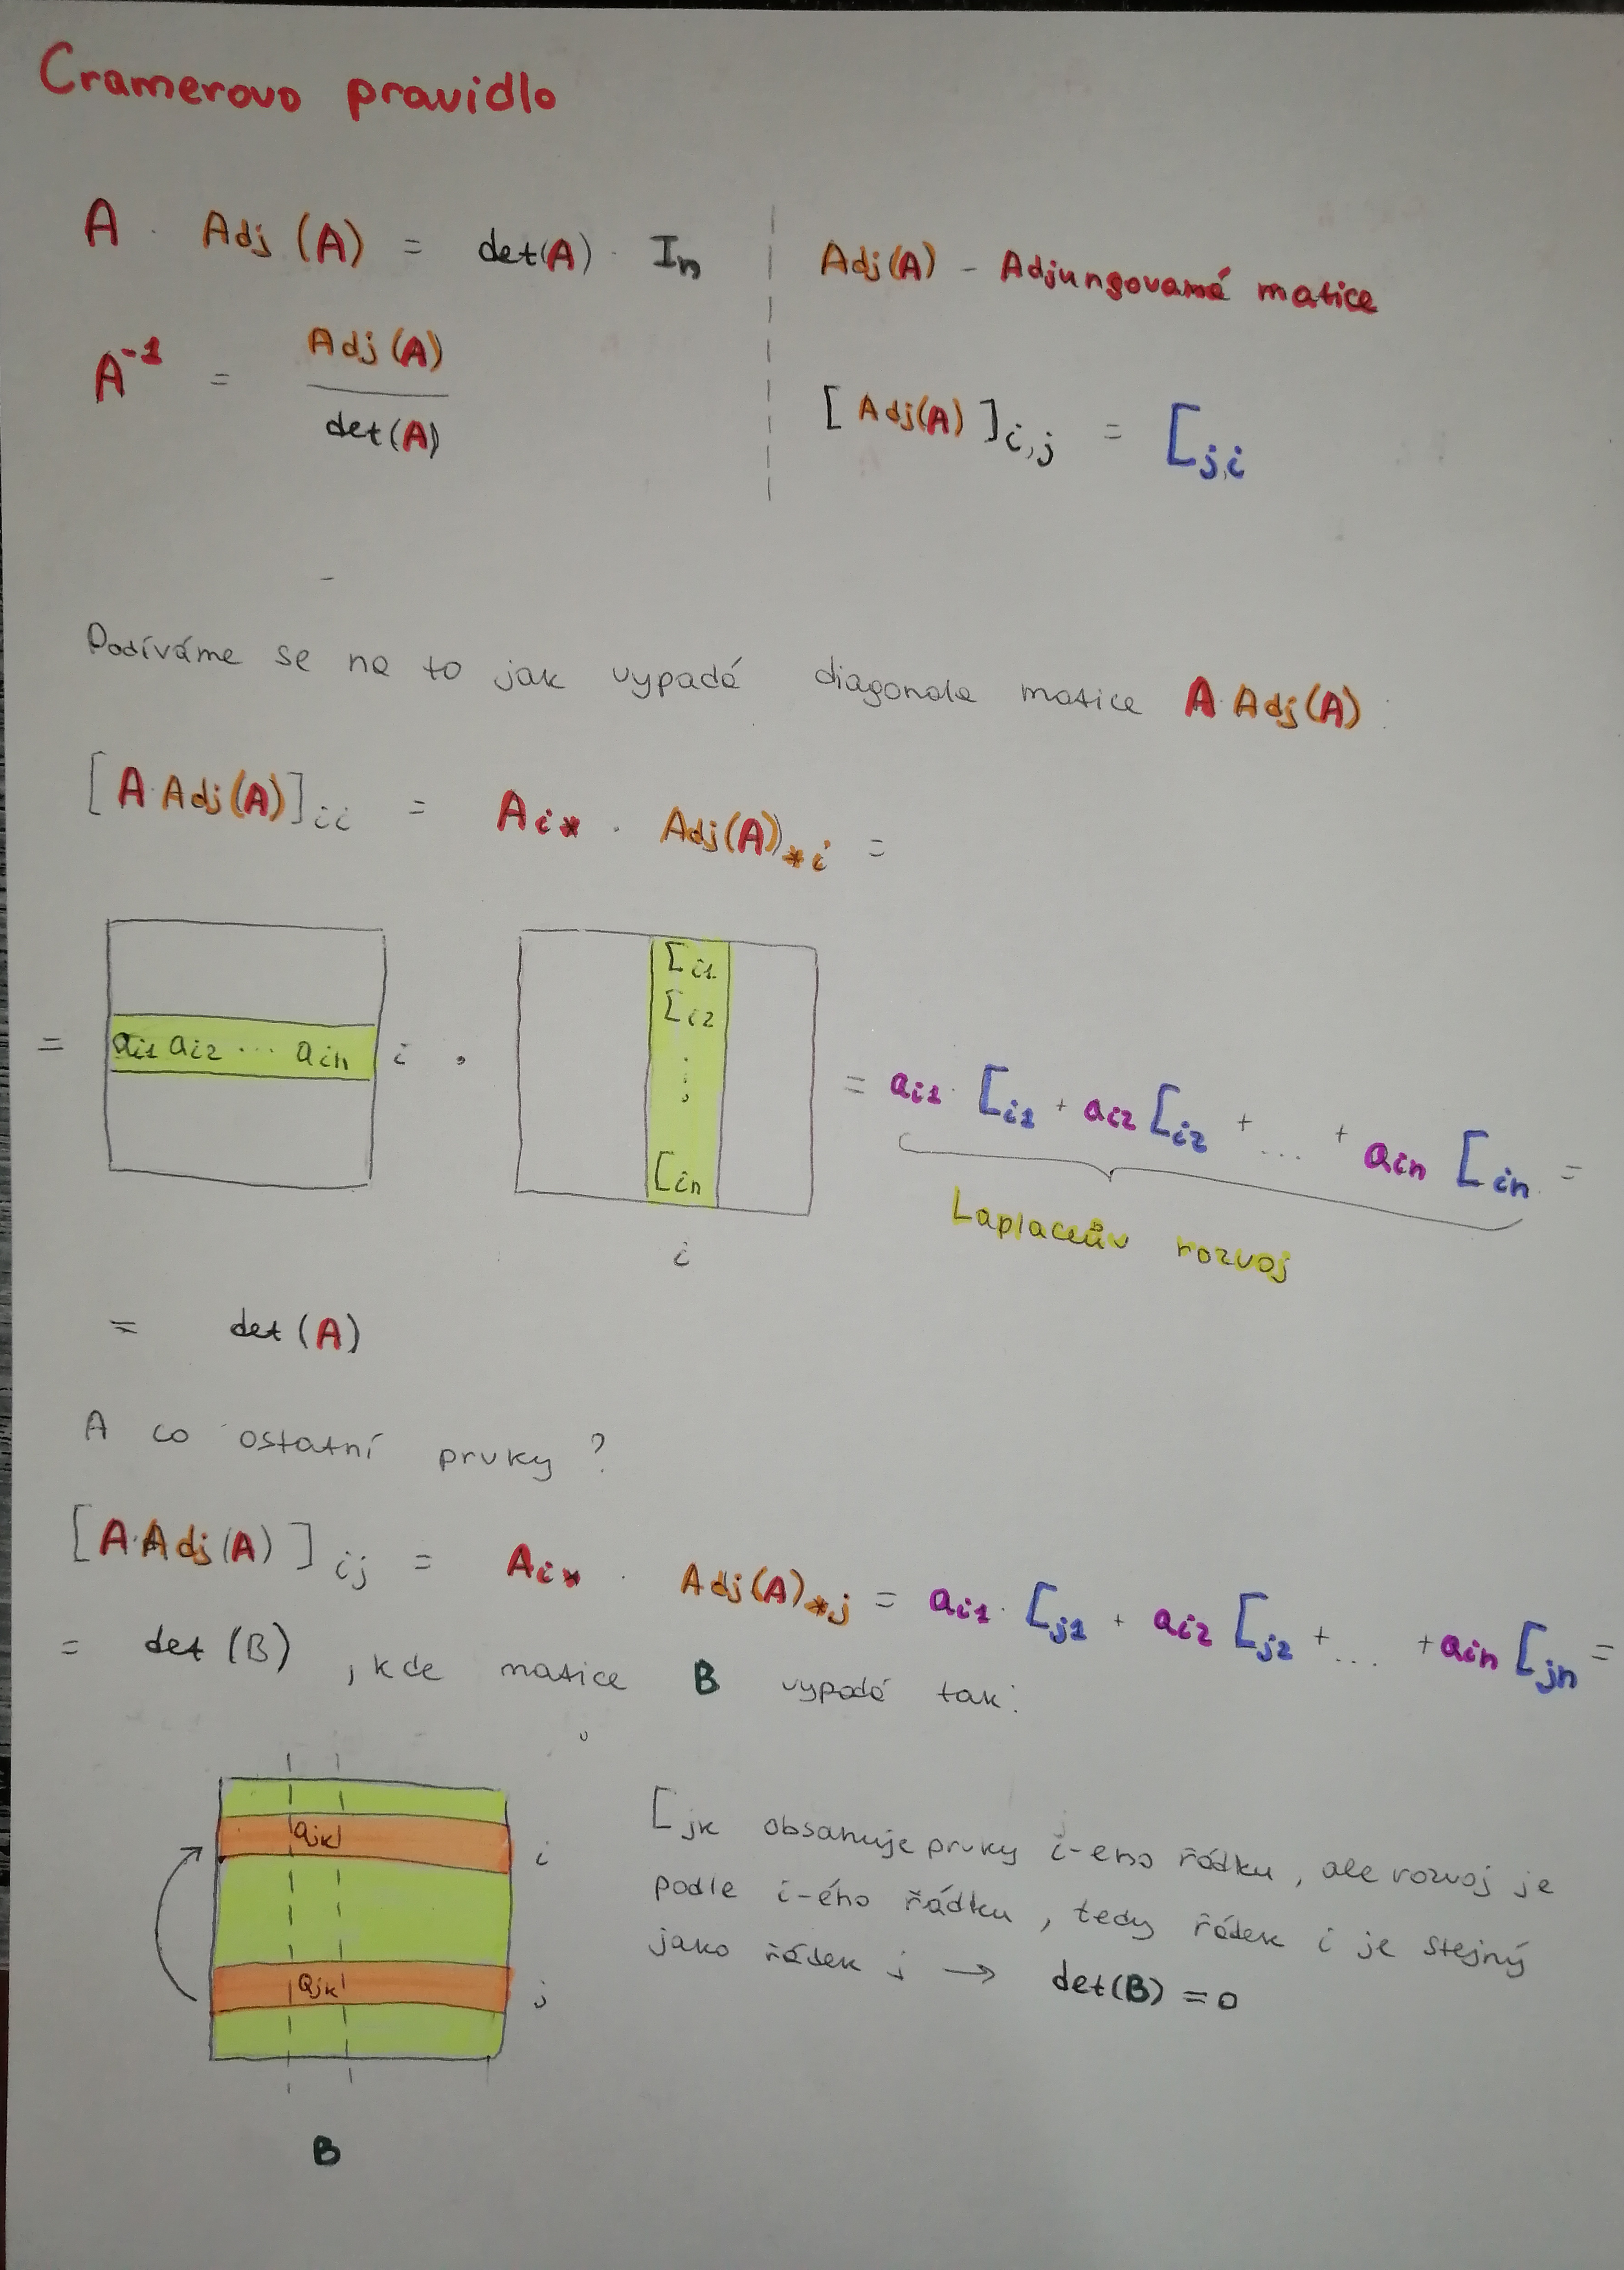 Cramerovo pravidlo
A · Adj(A) = det(A) · In
Adj(A) - Adjungovamá matice
A⁻¹ = Adj(A) / det(A)
[Adj(A)]i,j = [j,i
Podíváme se na to jak vypadá diagonala matice A·Adj(A):
[A·Adj(A)]ii = Ai* · Adj(A)*i =
= ai1 ai2 ... ain i · [i1 [i2 ⋮ [in i = ai1·[i1 + ai2[i2 + ... + ain[in =
Laplaceův rozvoj
= det(A)
A co ostatní prvky?
[A·Adj(A)]ij = Ai* · Adj(A)*j = ai1·[j1 + ai2[j2 + ... + ain[jn =
= det(B), kde matice B vypadá tak:
ajk i
ajk j
B
[jk obsahuje prvky i-eho řádku, ale rozvoj je
podle i-ého řádku, tedy řádek i je stejný
jako řádek j → det(B) = 0